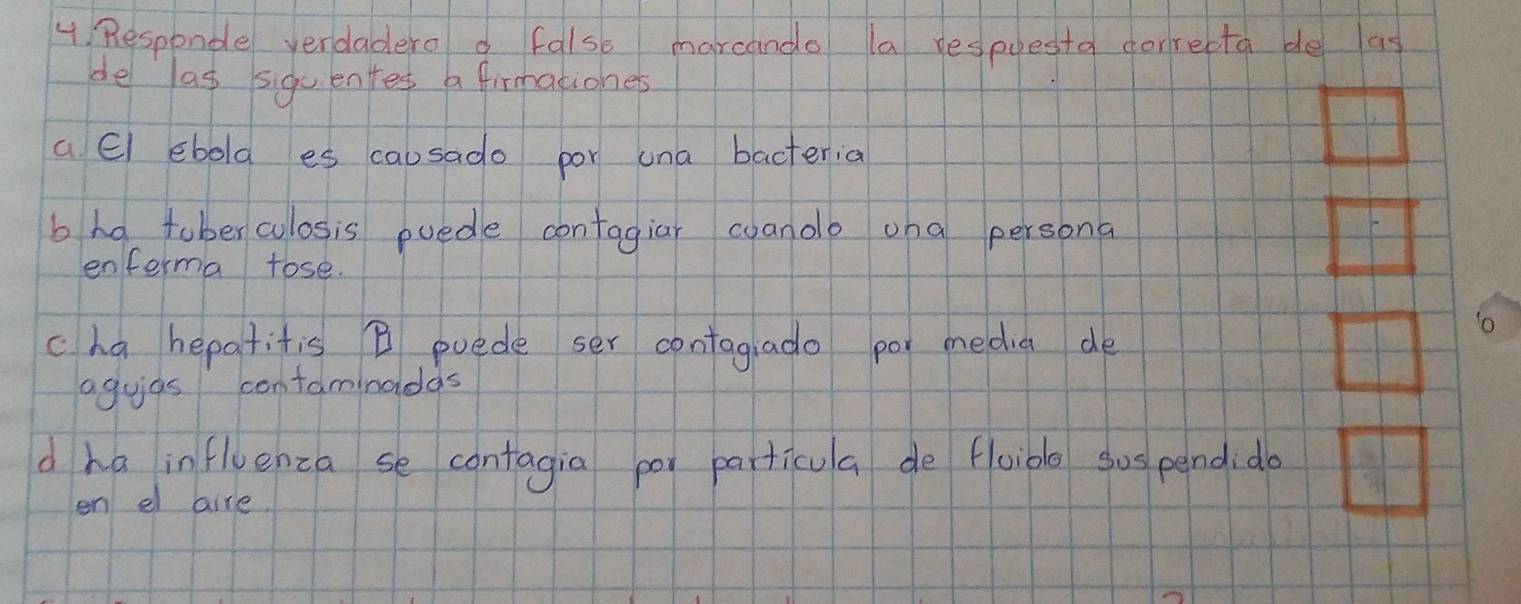 4. Responde verdadero o falso marcando la respuesta correcta de las
de las siguentes afirmaciones
a. El ebola es causado por una bacteria
b ha tuberculosis puede contagiar cuando una persona
enferma tose.
c. ha hepatitis B puede ser contagiado por media de
agujas contaminadas
d ha influenza se contagia por particula de fluido suspendido
en el aire